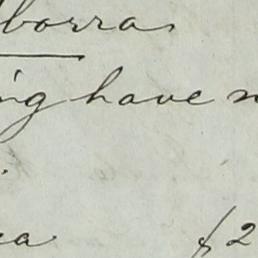 borra
ing have
ea £2